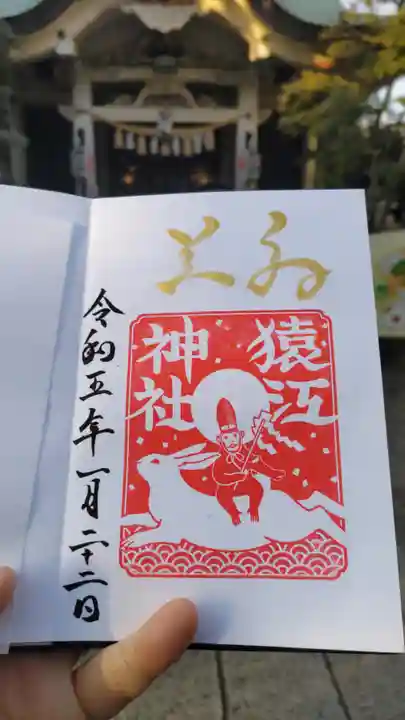 奉拝
猿江
神社
令和五年一月二十二日